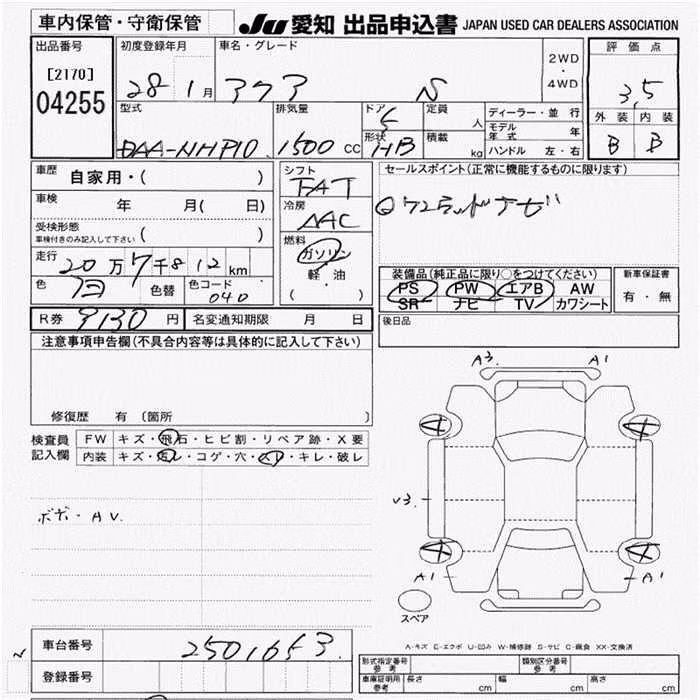 車内保管・守衛保管
JU 愛知 出品申込書 JAPAN USED CAR DEALERS ASSOCIATION
出品番号 初度登録年月 車名・グレード 2WD・4WD 評価点
[2170] 04255 28 1月 S 3.5
型式 排気量 ドア 5 定員 人 ディーラー・並行 外装 内装
DAA-NHP10 1500 CC 形状 HB 積載 kg モデル年式 年 B B
ハンドル 左・右
車歴 自家用・( ) シフト FAT セールスポイント(正常に機能するものに限ります)
車検 年 月( 日) 冷房 AAC
受検形態 車検付きのみ記入して下さい ( ) 燃料 ガソリン
走行 20万7千812km 軽・油 装備品(純正品に限り○をつけてください) 新車保証書
色 白 色替 色コード 040 ( ・ ) PS PW エアB AW 有・無
SR ナビ TV カワシート
R券 9130円 名変通知期限 月 日 後日品
注意事項申告欄(不具合内容等は具体的に記入して下さい)
A3 A1
修復歴 有 (箇所 )
検査員記入欄 FW キズ・飛石・ヒビ割・リペア跡・X要
内装 キズ・汚レ・コゲ・穴・スレ・キレ・破レ
V3.
ボボ・AV.
A1 A1
スペア
A-キズ E-エクボ U-凹み W-補修跡 S-サビ C-腐食 XX-交換済
車台番号 2501653.
登録番号
型式指定番号 参考 類別区分番号 参考
車庫証明用 参考 長さ cm 幅 cm 高さ cm